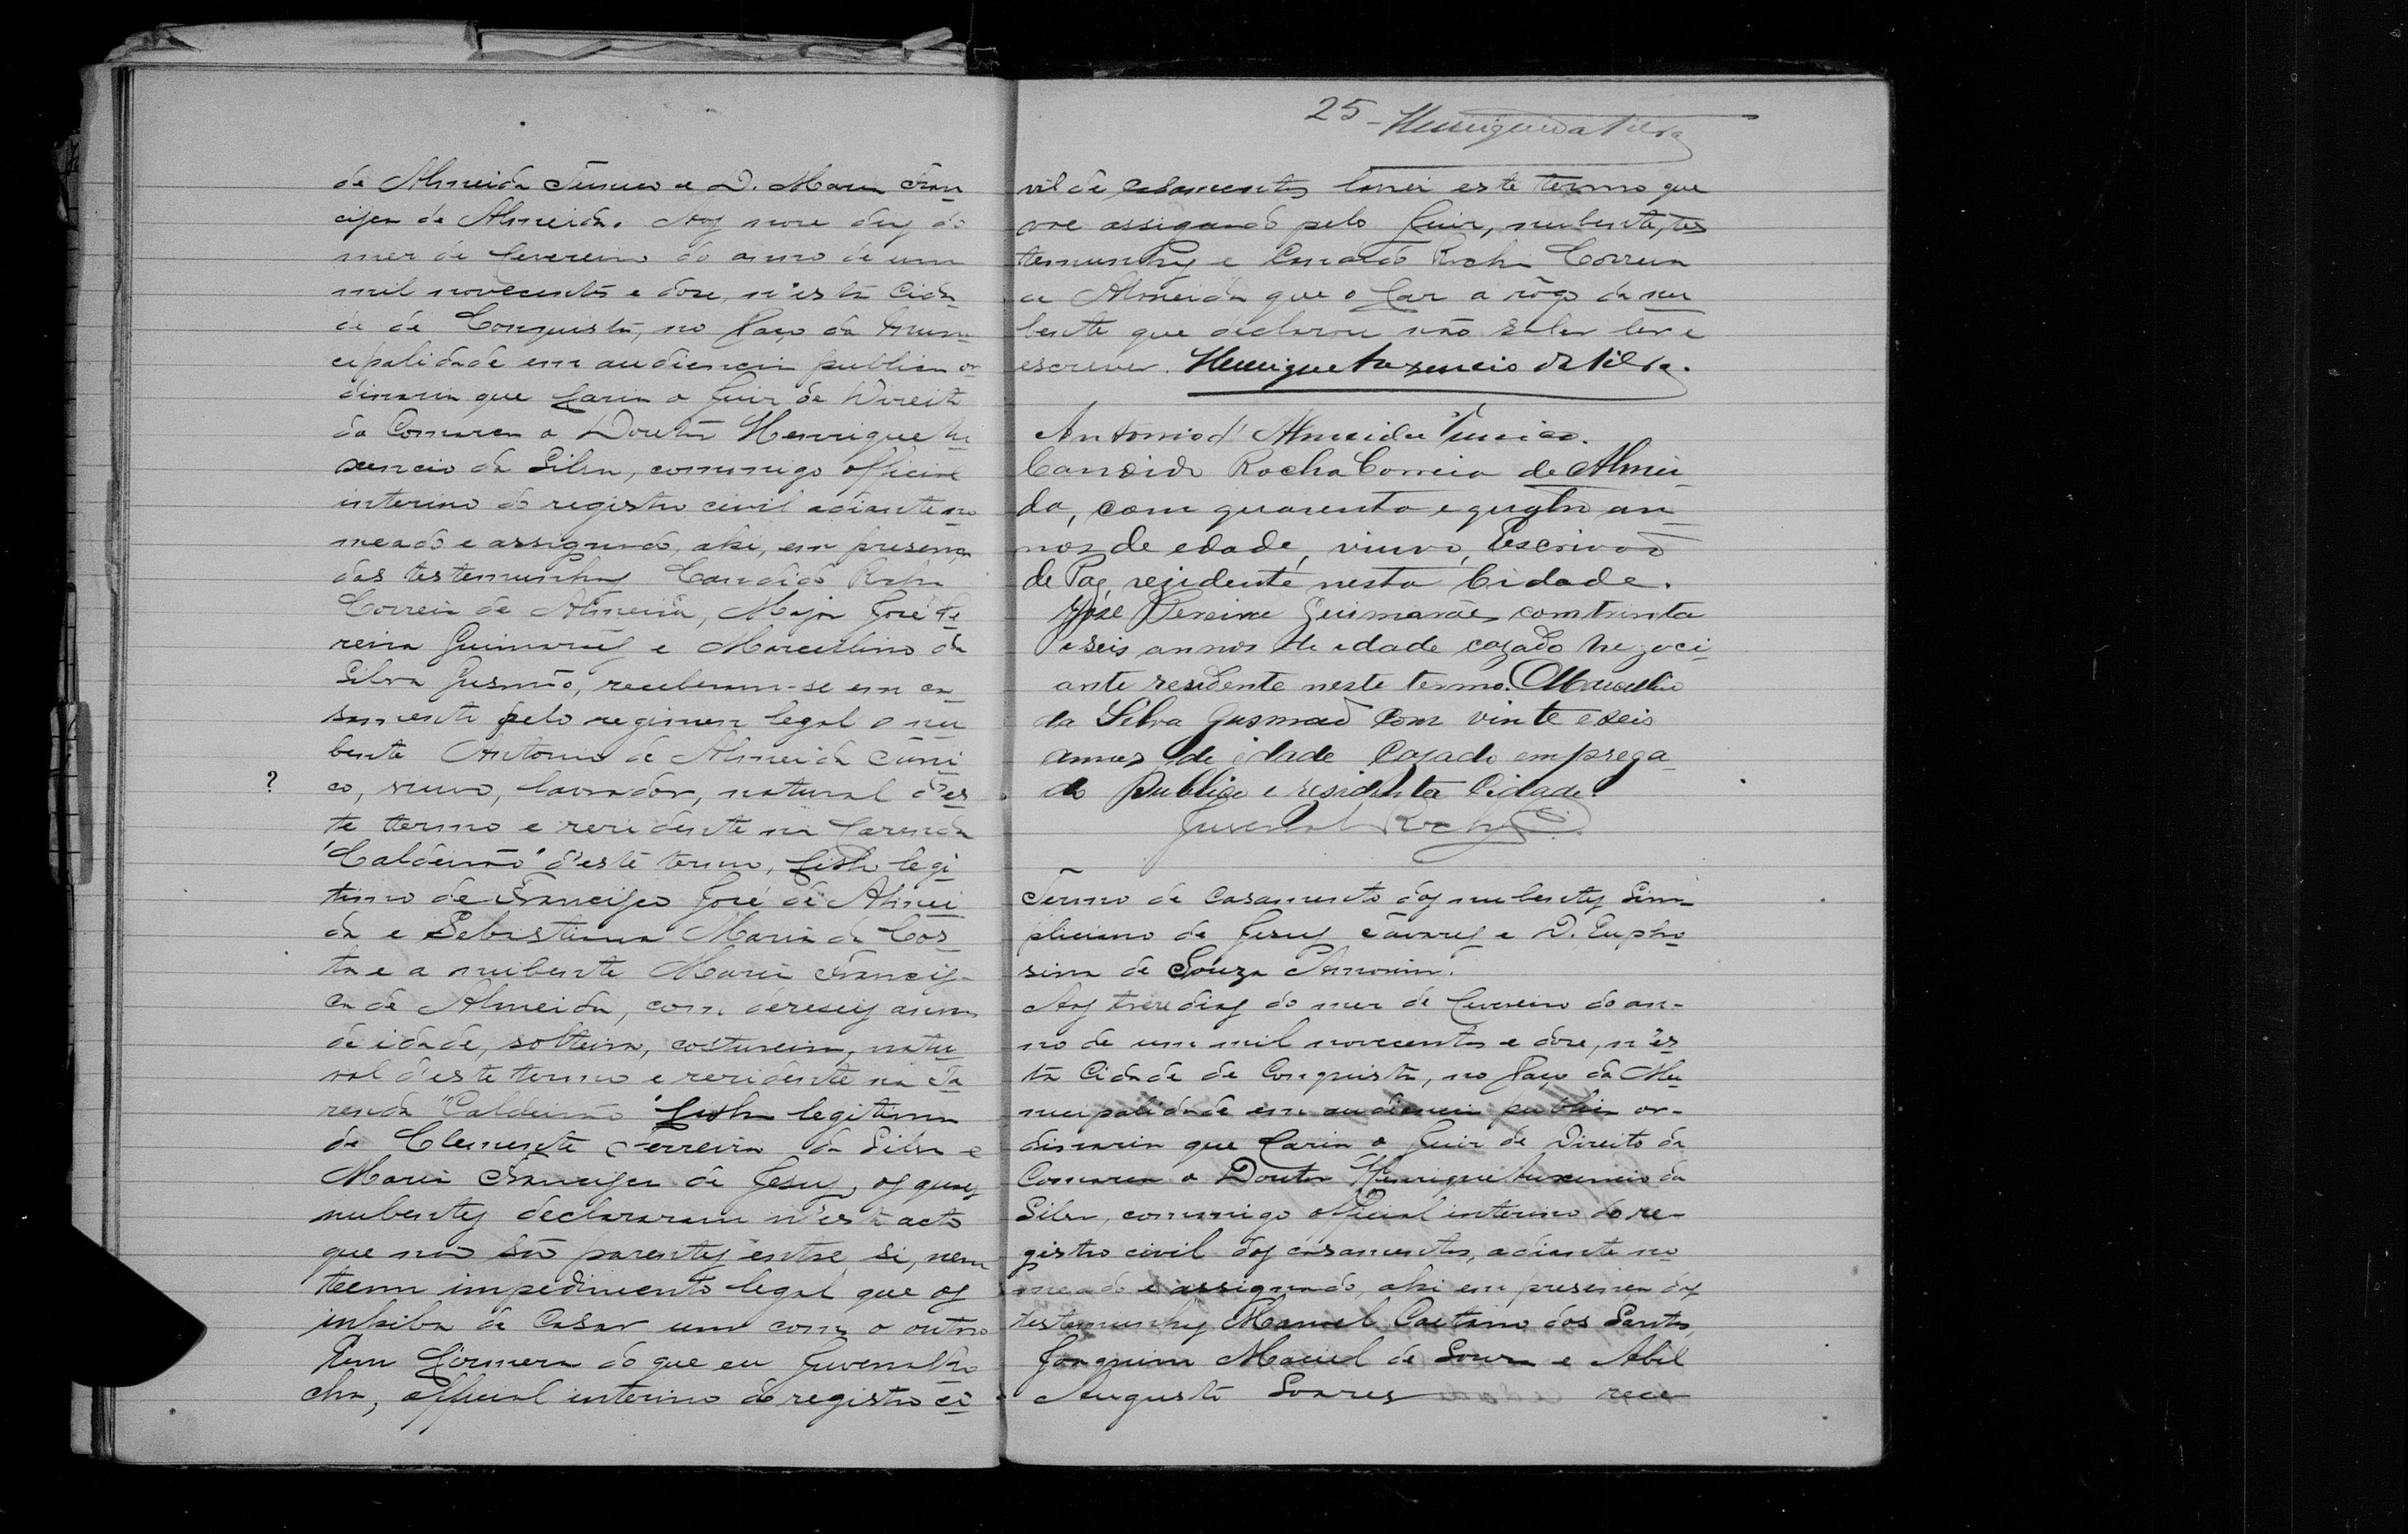 de Almeida Tunico e D. Maria Fran
cisca de Almeida. Aos nove dias do
mez de fevereiro do anno de um
mil novecentos e doze, n'esta Cida
de de Conquista, no Paço da Muni
cipalidade em audiencia publica or
dinaria que fazia o Juiz de Direito
da Comarca o Doutor Henrique Au
xencio da Silva, commigo official
interino do registro civil adiante no
meado e assignado, ahi, em presença
das testemunhas Candido Rocha
Correia de Almeida, Major José Pe
reira Guimarães e Marcellino da
Silva Gusmão, receberam-se em ca
samento pelo regimen legal o nu
bente Antonio de Almeida Tuni
?
co, viuvo, lavrador, natural d'es
te termo e rezidente na fazenda
"Caldeirão" d'este termo, filho legi
timo de Francisco José de Almei
da e Sebastiana Maria da Cos
ta e a nubente Maria Francis-
ca de Almeida, com dezeseis annos
de idade, solteira, costureira, natu
ral d'este termo e rezidente na Fa
zenda "Caldeirão" filha legitima
de Clemente Ferreira da Silva e
Maria Francisca de Jesus, os quaes
nubentes declararam n'este acto
que não são parentes entre si, nem
teem impedimento legal que os
inhiba de casar um com o outro
Em firmeza do que eu Juvenal Ro
cha, official interino do registro ci
25 - Henrique da Silva
vil de casamentos lavrei este termo que
vae assignado pelo Juiz, nubente, tes
temunhas e Candido Rocha Correia
de Almeida que o faz a rôgo da nu
bente que declarou não saber ler e
escrever. Henrique Auxencio da Silva.
Antonio d'Almeida Tunico.
Candido Rocha Correia de Almei
da, com quarenta e quatro an
nos de edade, viuvo, Escrivão
de Paz, rezidente nesta Cidade.
José Pereira Guimarães com trinta
e seis annos de edade cazado negoci
ante residente neste termo. Marcellino
da Silva Gusmão com vinte e seis
annos de idade Cazado emprega
do publico e residente Cidade.
Juvenal Rocha
Termo de Casamento dos nubentes Sim
pliciano de Jesus Tavares e D. Euphro
sina de Souza Amorim.
Aos treze dias do mez de fevereiro do an-
no de um mil novecentos e doze, n'es
ta Cidade de Conquista, no Paço da Mu
nicipalidade em audiencia publica or-
dinaria que fazia o Juiz de Direito da
Comarca o Doutor Henrique Auxencio da
Silva, commigo official interino do re-
gistro civil dos casamentos, adiante no
meado e assignado, ahi em presença das
testemunhas Manoel Caetano dos Santos,
Joaquim Maciel de Souza e Abil
Augusto Soares rece